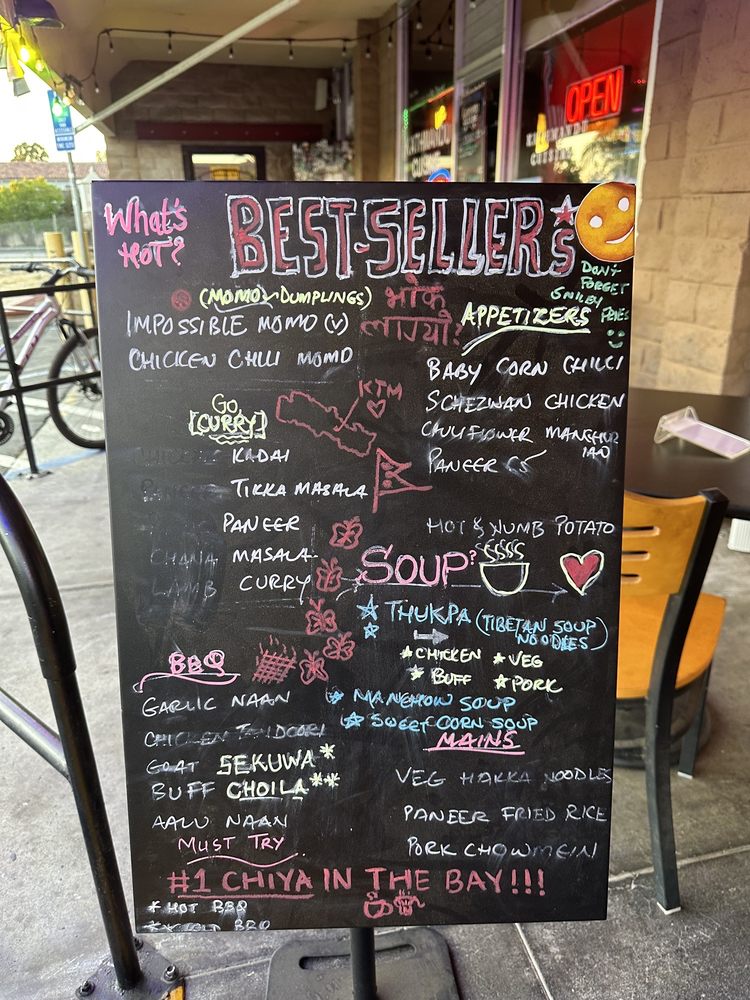 What's
HOT?
BEST-SELLERS
DON'T
FORGET
SMILEY
FRIES
(MOMO, DUMPLINGS)
IMPOSSIBLE MOMO (V)
CHICKEN CHILI MOMO
भोक
लाग्यो?
KTM
APPETIZERS
BABY CORN CHILLI
SCHEZWAN CHICKEN
CAULIFLOWER MANCHUR
IAN
PANEER 65
HOT & NUMB POTATO
GO,
[CURRY]
KADAI
TIKKA MASALA
PANEER
CHANA MASALA
LAMB CURRY
SOUP?
THUKPA (TIBETAN SOUP
NOODLES)
*CHICKEN *VEG
*BUFF *PORK
MANCHOW SOUP
SWEET CORN SOUP
BBQ
GARLIC NAAN
CHICKEN TANDOORI
GOAT SEKUWA*
BUFF CHOILA**
AALU NAAN
MUST TRY
MAINS
VEG HAKKA NOODLES
PANEER FRIED RICE
PORK CHOWMEIN
#1 CHIYA IN THE BAY!!!
* HOT BBQ
** COLD BBQ
OPEN
KATHMANDU
CUISINE